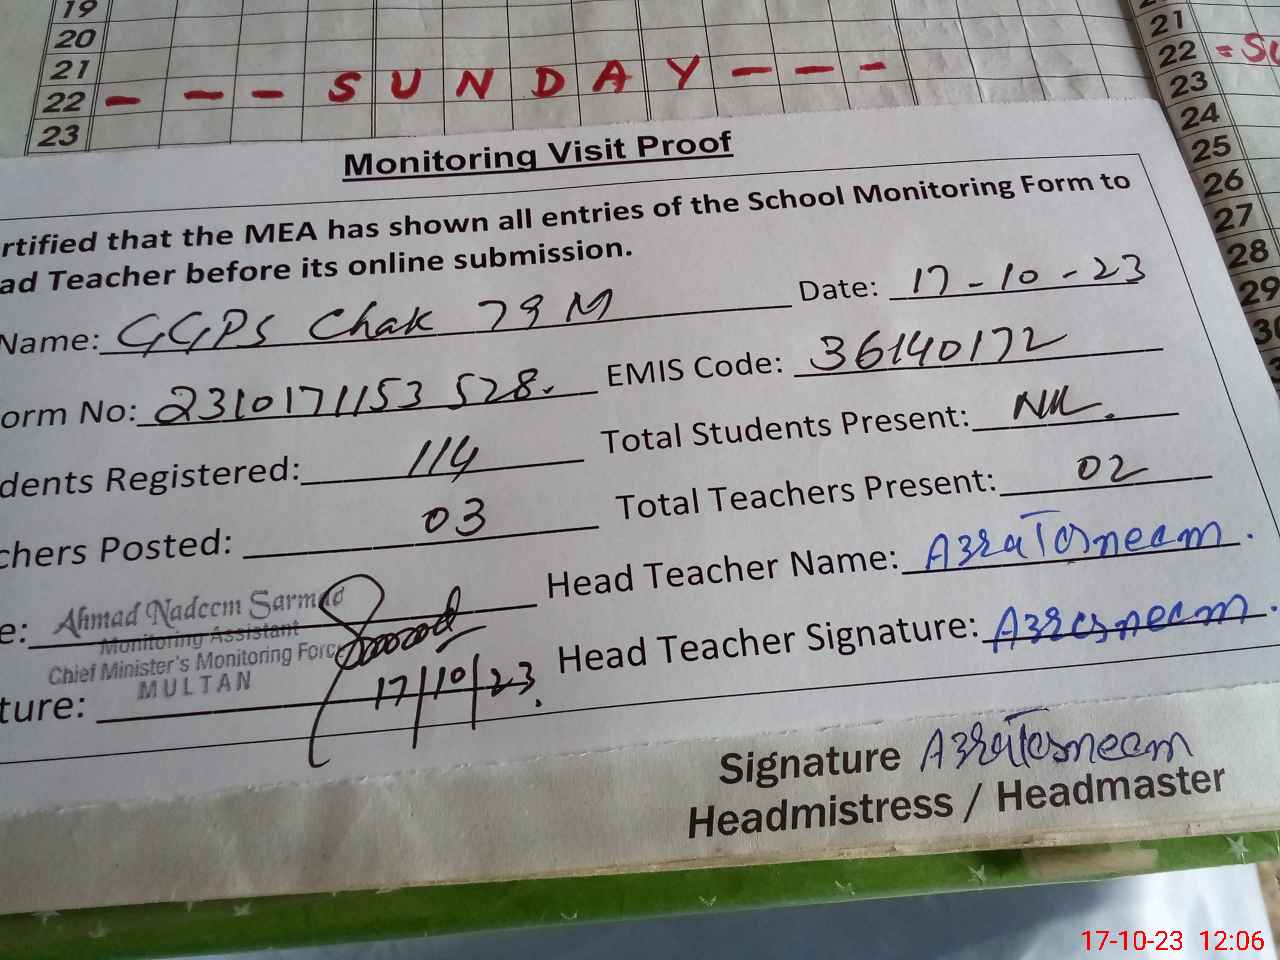 19
20
21
22 - - - SUNDAY - - -
23
21
22 = SU
23
24
25
26
27
28
29
Monitoring Visit Proof
rtified that the MEA has shown all entries of the School Monitoring Form to
ad Teacher before its online submission.
Name: GGPS Chak 79 M Date: 17-10-23
orm No: 2310171153528. EMIS Code: 36140172
dents Registered: 114 Total Students Present: NIL.
chers Posted: 03 Total Teachers Present: 02
e: Ahmad Nadeem Sarmad Head Teacher Name: AzraTasneem.
Monitoring Assistant
Chief Minister's Monitoring Force
MULTAN
ture: 17/10/23. Head Teacher Signature: Azrasneem.
Signature AzraTasneem
Headmistress / Headmaster
17-10-23 12:06